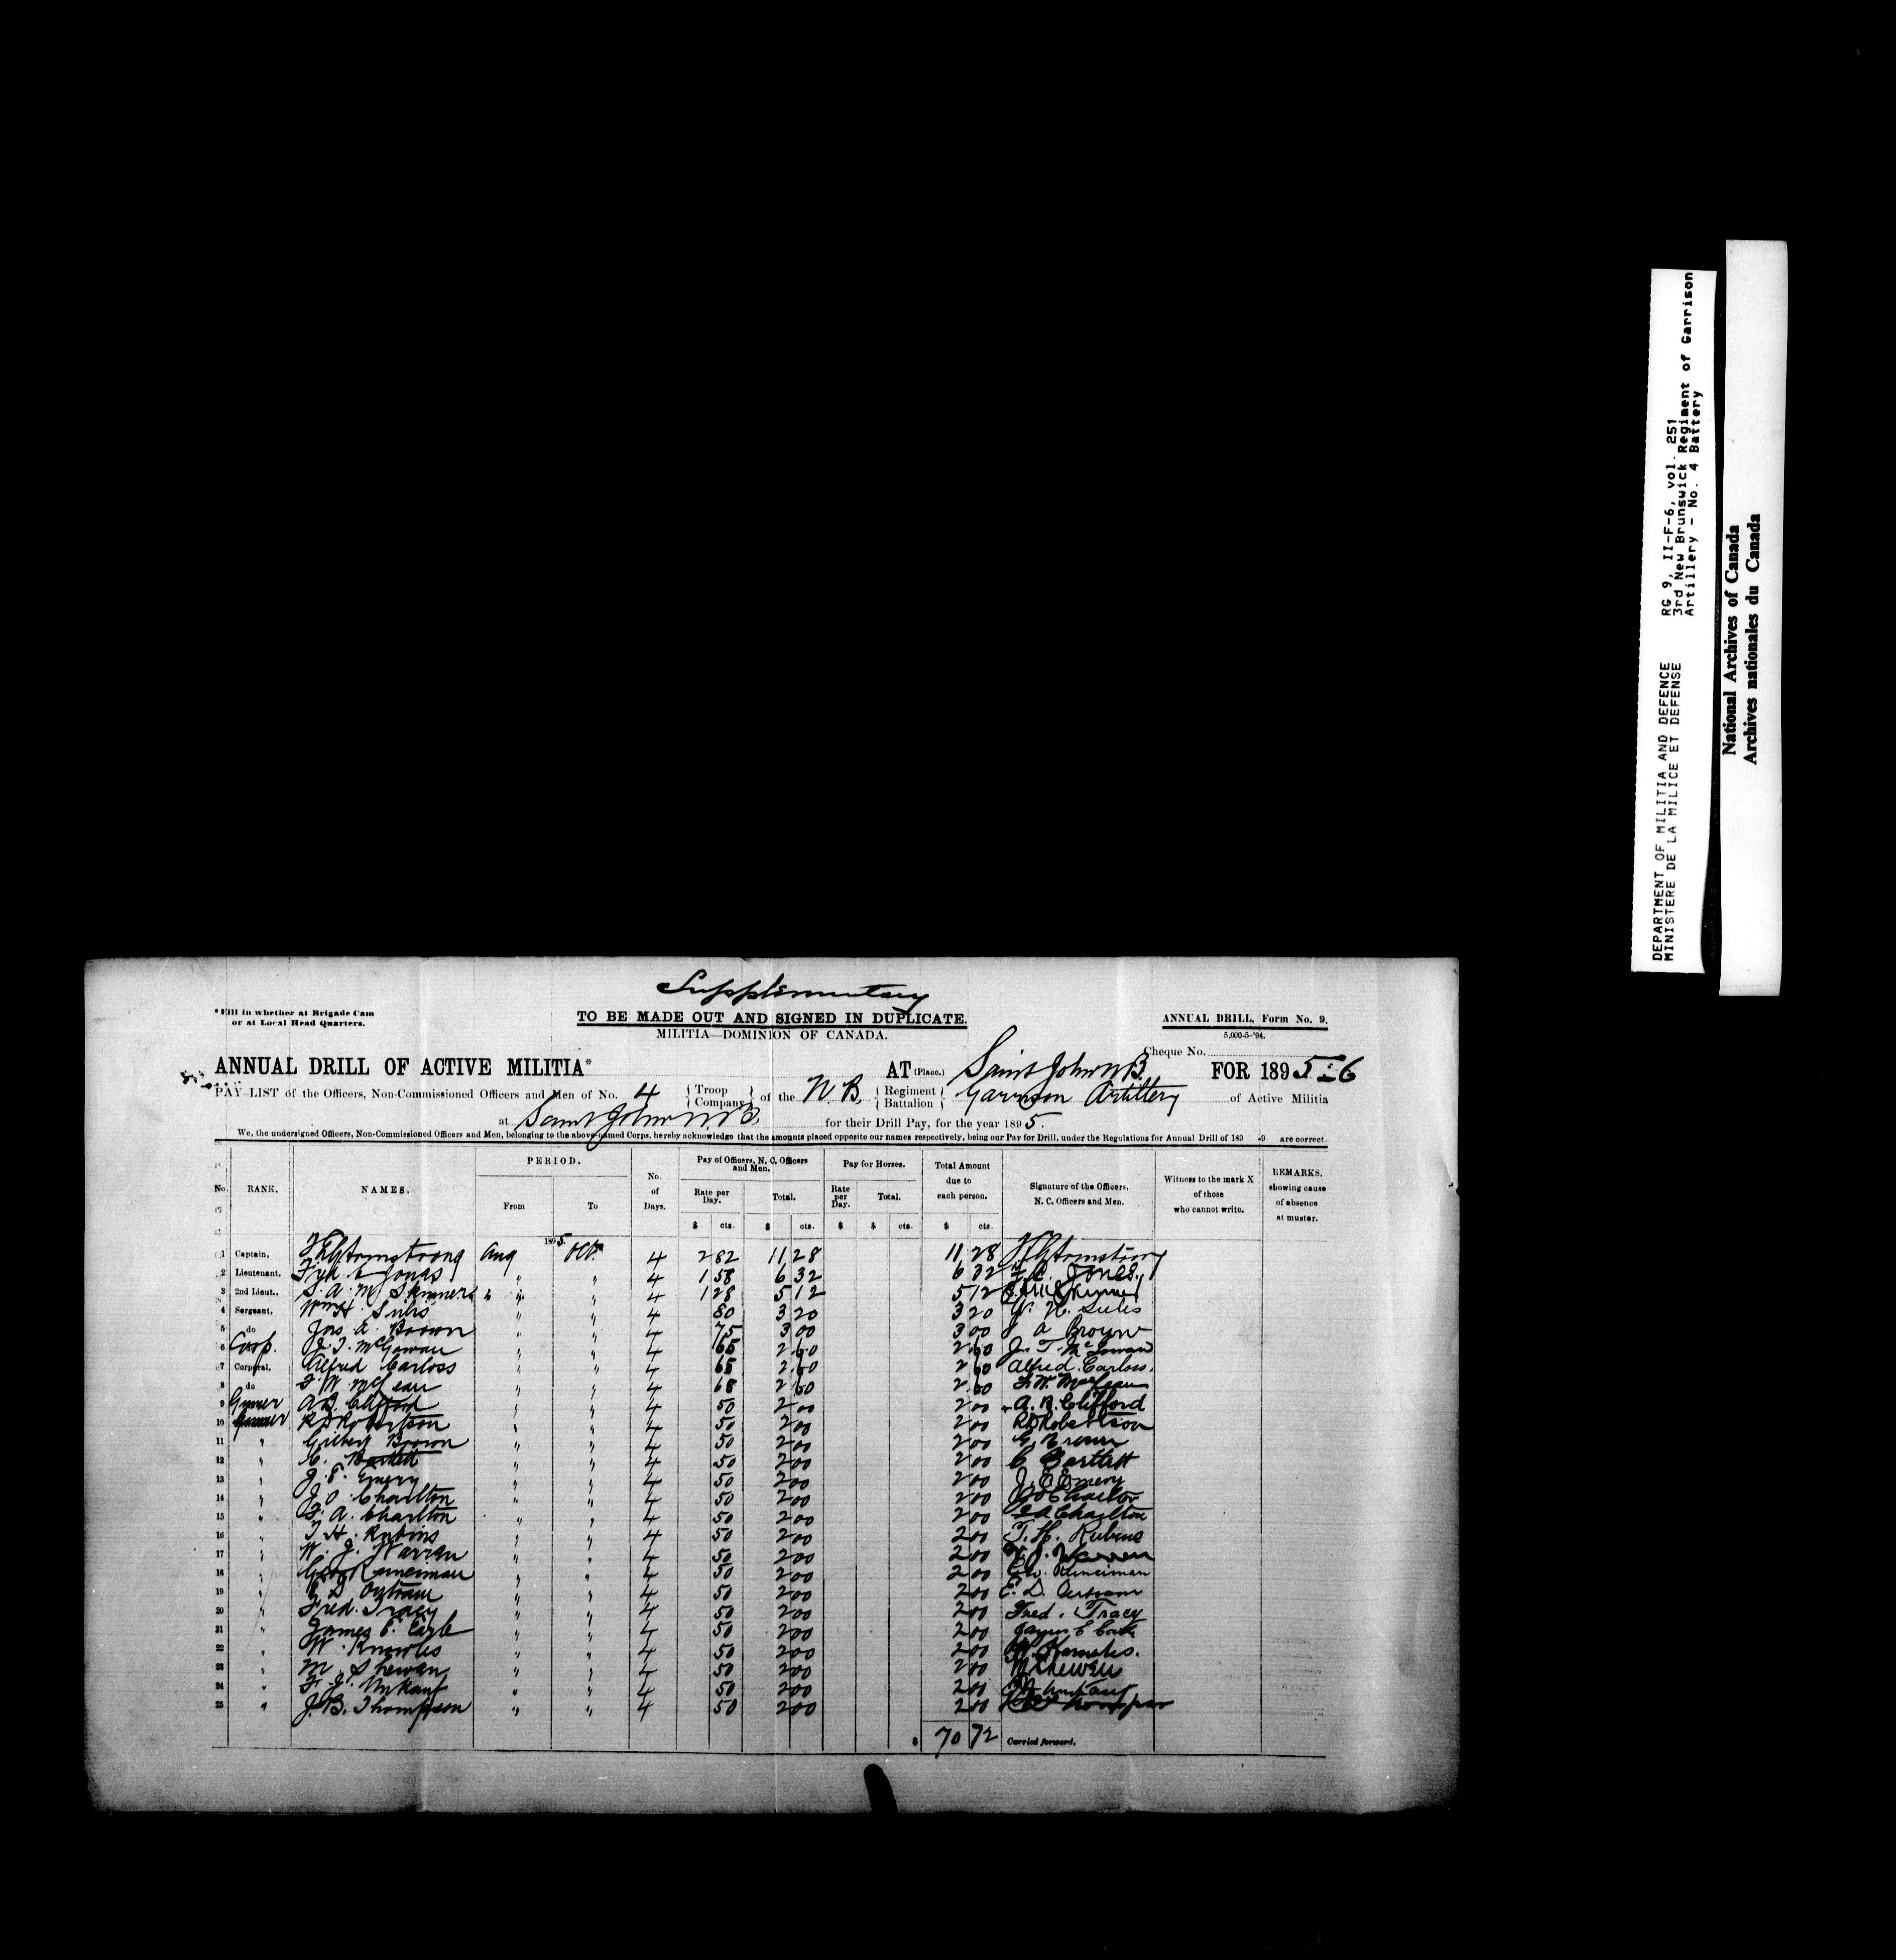 Supplementary
*Fill in whether at Brigade Cam
or at Local Head Quarters.
TO BE MADE OUT AND SIGNED IN DUPLICATE.
MILITIA—DOMINION OF CANADA.
ANNUAL DRILL, Form No. 9.
5,000-5-'94.
Cheque No.
ANNUAL DRILL OF ACTIVE MILITIA* AT (Place.) Saint John N.B. FOR 1895-6
PAY-LIST of the Officers, Non-Commissioned Officers and Men of No. 4 { Troop Company } of the N.B. { Regiment Battalion } Garrison Artillery of Active Militia
at Saint John N.B. for their Drill Pay, for the year 1895.
We, the undersigned Officers, Non-Commissioned Officers and Men, belonging to the above-named Corps, hereby acknowledge that the amounts placed opposite our names respectively, being our Pay for Drill, under the Regulations for Annual Drill of 189 -9 are correct.
No. RANK. NAMES. PERIOD. From To No. of Days. Pay of Officers, N. C. Officers and Men. Rate per Day. Total. Pay for Horses. Rate per Day. Total. Total Amount due to each person. Signature of the Officers, N. C. Officers and Men. Witness to the mark X of those who cannot write. REMARKS, showing cause of absence at muster.
$ cts. $ cts. $ $ cts. $ cts.
1895
1 Captain, Armstrong Aug Oct 4 2 82 11 28 11 28 Armstrong
2 Lieutenant, Fred C Jones " " 4 1 58 6 32 6 32 F. C. Jones
3 2nd Lieut., S. A. M. Skinner " " 4 1 28 5 12 5 12 Skinner
4 Sergeant, Wm H. Sulis " " 4 80 3 20 3 20 W. H. Sulis
5 do Jas A. Brown " " 4 75 3 00 3 00 J A Brown
6 Corp. J. T. McGowan " " 4 65 2 60 2 60 J. T. McGowan
7 Corporal, Alfred Carloss " " 4 65 2 60 2 60 Alfred Carloss
8 do F. W. McLean " " 4 65 2 60 2 60 F. W. MacLean
9 Gunner A. B. Clifford " " 4 50 2 00 2 00 A. B. Clifford
10 Gunner R D Robertson " " 4 50 2 00 2 00 R D Robertson
11 " Gilbert Brown " " 4 50 2 00 2 00 G. Brown
12 " C. Bartlett " " 4 50 2 00 2 00 C Bartlett
13 " J. E. Emery " " 4 50 2 00 2 00 J. E Emery
14 " J. O. Charlton " " 4 50 2 00 2 00 J O Charlton
15 " F. A. Charlton " " 4 50 2 00 2 00 F A Charlton
16 " T. H. Rubins " " 4 50 2 00 2 00 T. H. Rubins
17 " W. J. Warren " " 4 50 2 00 2 00 W. J. Warren
18 " Geo Runciman " " 4 50 2 00 2 00 Geo. Runciman
19 " E D Outram " " 4 50 2 00 2 00 E. D. Outram
20 " Fred. Tracy " " 4 50 2 00 2 00 Fred. Tracy
21 " James C. Earle " " 4 50 2 00 2 00 James C Earle
22 " W. Knowles " " 4 50 2 00 2 00 W. Knowles.
23 " M. Shewan " " 4 50 2 00 2 00 M Shewan
24 " F. J. " " 4 50 2 00 2 00
25 " J. B. Thompson " " 4 50 2 00 2 00 Thompson
$ 70 72 Carried forward.
DEPARTMENT OF MILITIA AND DEFENCE
MINISTERE DE LA MILICE ET DEFENSE
RG 9, II-F-6, vol. 251
3rd New Brunswick Regiment of Garrison
Artillery - No. 4 Battery
National Archives of Canada
Archives nationales du Canada